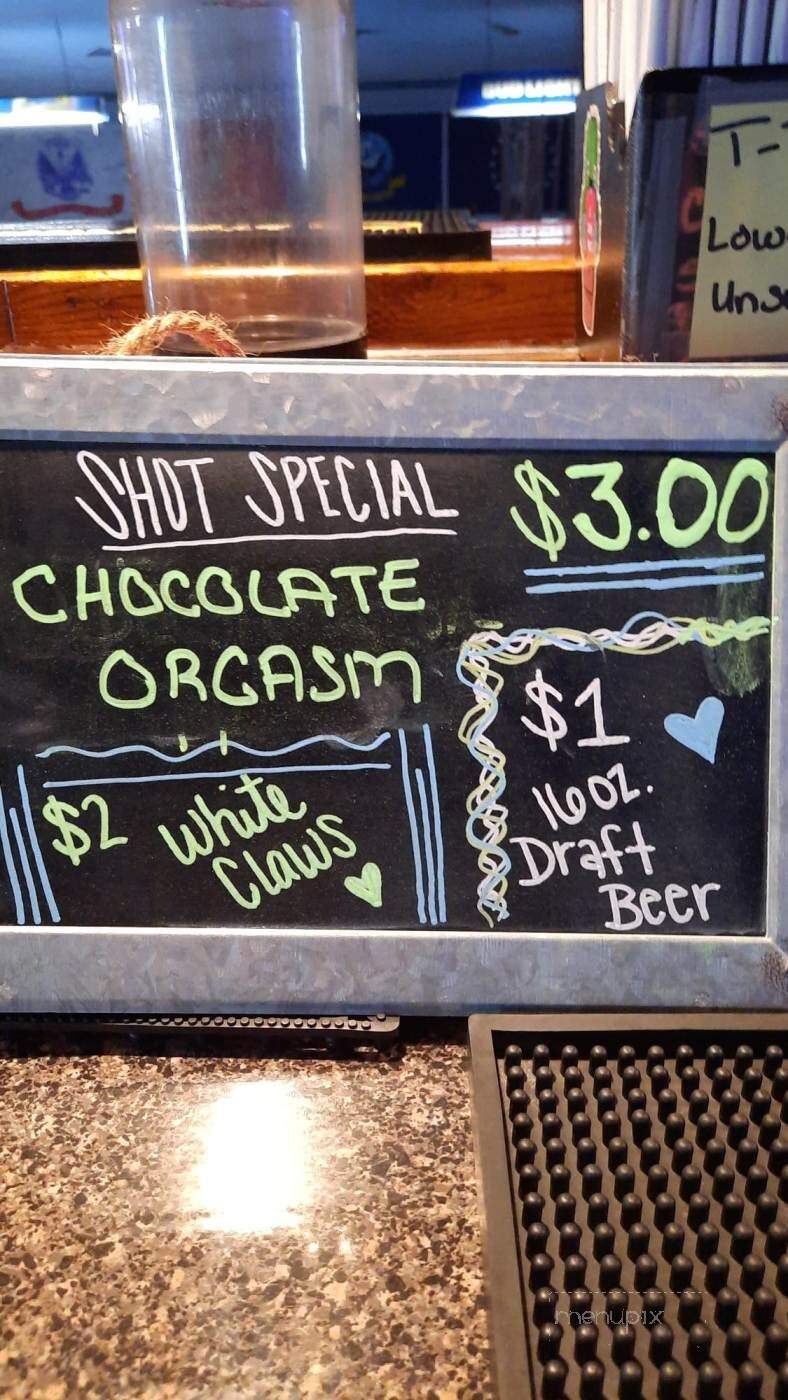 BUD LIGHT
T-
Low
Uns
SHOT SPECIAL
$3.00
CHOCOLATE
ORGASM
$2 White
Claws
$1
16oz.
Draft
Beer
menupix